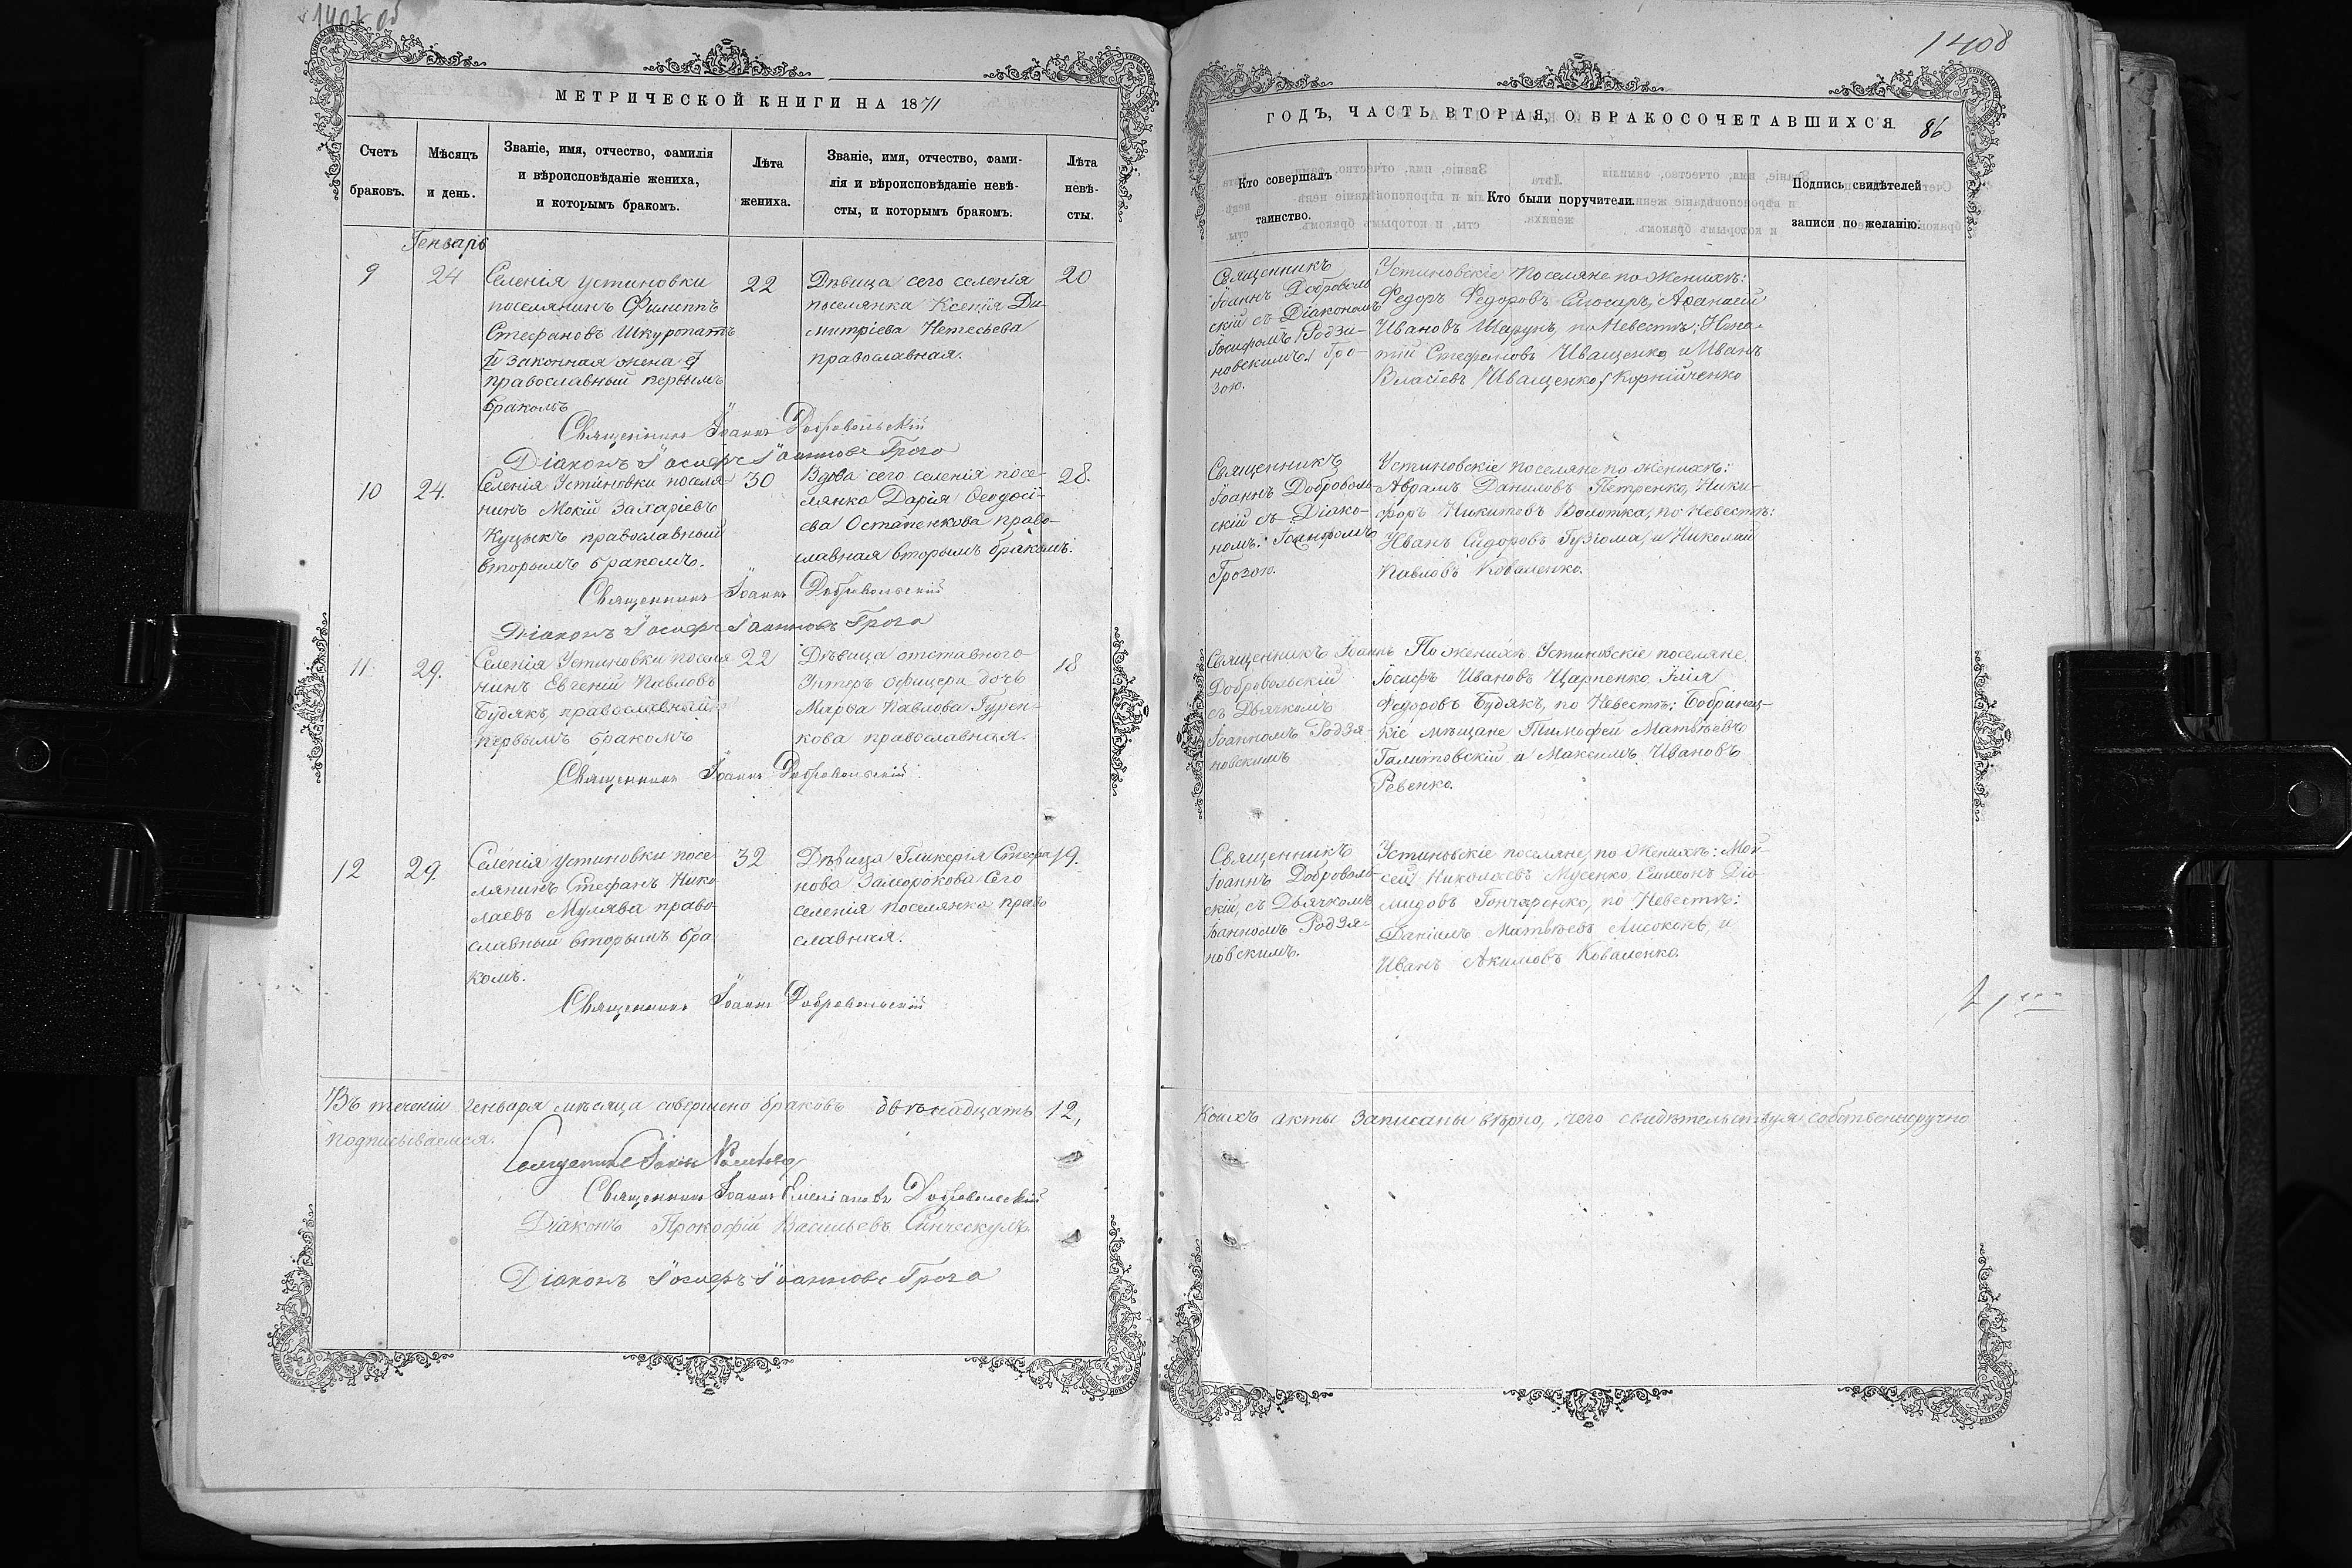 1408
МЕТРИЧЕСКОЙ КНИГИ НА 1871
Счетъ браковъ.
Мѣсяцъ и день.
Званіе, имя, отчество, фамилія
и вѣроисповѣданіе жениха,
и которымъ бракомъ.
Лѣта
жениха.
Званіе, имя, отчество, фами-
лія и вѣроисповѣданіе невѣ-
сты, и которымъ бракомъ.
Лѣта
невѣ-
сты.
Генварь
9
24
Селенія Устиновки
поселянинъ Филиппъ
Стефановъ Шкуропатъ
законная жена
православный первымъ
бракомъ
22
Дѣвица сего селенія
поселянка Ксенія Ди-
митріева Нетесьева
православная.
20
Священникъ Іоаннъ Добровольскій
Діаконъ Іосифъ Іоанновъ Гроза
10
24.
Селенія Устиновки поселя-
нинъ Мокій Захаріевъ
Куцыкъ православный
вторымъ бракомъ.
30
Вдова сего селенія посе-
лянка Дарія Ѳеодосі-
ева Остапенкова право-
славная вторымъ бракомъ.
28.
Священникъ Іоаннъ Добровольскій
Діаконъ Іосифъ Іоанновъ Гроза
11
29.
Селенія Устиновки поселя
нинъ Евгеній Павловъ
Будякъ, православный
первымъ бракомъ
22
Дѣвица отставного
Унтеръ офицера дочь
Марѳа Павлова Гурен-
кова православная.
18
Священникъ Іоаннъ Добровольскій
12
29.
Селенія Устиновки посе
лянинъ Стефанъ Нико
лаевъ Мулява право-
славный вторымъ бра
комъ.
32
Дѣвица Гликерія Стефа
нова Заморокова Сего
селенія поселянка право
славная.
19.
Священникъ Іоаннъ Добровольскій
Въ теченіи Генваря мѣсяца совершено браковъ двѣнадцать 12,
подписываемся.
Священникъ Іоаннъ
Священникъ Іоаннъ Емеліановъ Добровольскій
Діаконъ Прокофій Васильевъ
Діаконъ Іосифъ Іоанновъ Гроза
ГОДЪ, ЧАСТЬ ВТОРАЯ, О БРАКОСОЧЕТАВШИХСЯ
86
Кто совершалъ
таинство.
Кто были поручители.
Подпись свидѣтелей
записи по желанію.
Священникъ
Іоаннъ Доброволь
скій съ Діакономъ
Іосифомъ Родзя-
новскимъ Гро-
зою.
Устиновскіе поселяне по Женихѣ:
Федоръ Федоровъ Слюсаръ, Аѳанасій
Ивановъ Шарунъ, по Невестѣ; Игна-
тій Стефановъ Иващенко и Иванъ
Власіевъ Иващенко Корнійченко
Священникъ
Іоаннъ Доброволь-
скій съ Діако-
номъ Іосифомъ
Грозою.
Устиновскіе поселяне по женихѣ:
Аврамъ Даниловъ Петренко, Ники-
форъ Никитовъ Волотка, по Невестѣ:
Иванъ Сидоровъ Гузіома, и Николай
Павловъ Коваленко.
Священникъ Іоаннъ
Добровольскій
съ Дьячкомъ
Іоанномъ Родзя-
новскимъ
По женихѣ Устиновскіе поселяне
Іосифъ Ивановъ Царпенко, Илія
Федоровъ Будякъ, по Невестѣ: Бобринец-
кіе мѣщане Тимофей Матвѣевъ
Галитовскій и Максимъ Ивановъ
Ревенко.
Священникъ
Іоаннъ Доброволь-
скій, съ Дьячкомъ
Іоанномъ Родзя-
новскимъ.
Устиновскіе поселяне, по Женихѣ: Мой-
сей Николаевъ Мусенко, Симеонъ Діо-
мидовъ Гончаренко, по Невестѣ:
Даніилъ Матвѣевъ Лисоконь, и
Иванъ Акимовъ Коваленко.
Коихъ акты записаны вѣрно, чего свидѣтельствуя собственноручно